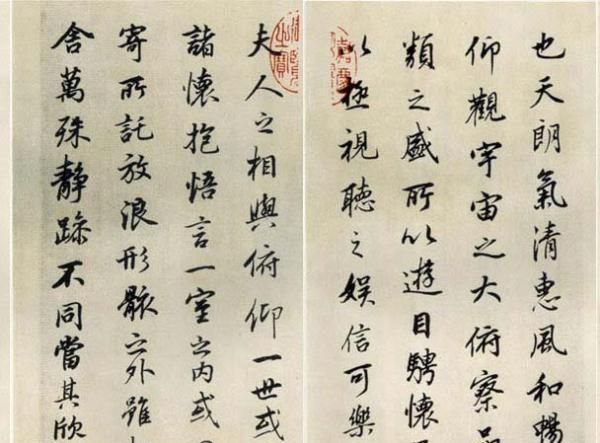 也天朗氣清惠風和暢
仰觀宇宙之大俯察品
類之盛所以遊目騁懷
以極視聽之娛信可樂
夫人之相與俯仰一世或
諸懷抱悟言一室之内或
寄所託放浪形骸之外雖
舍萬殊静躁不同當其欣